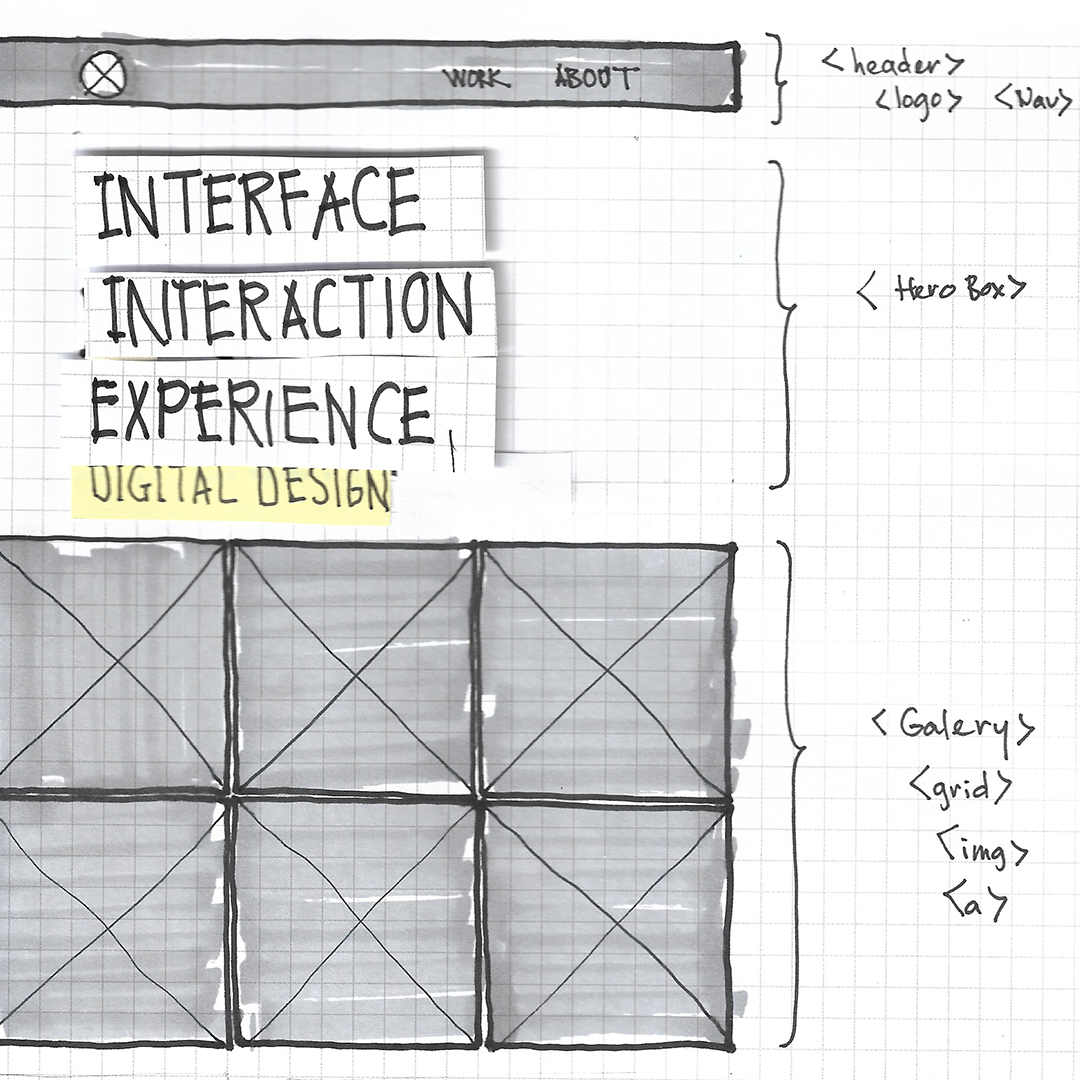 WORK ABOUT
<header>
<logo> <Nav>
INTERFACE
INTERACTION
EXPERIENCE
DIGITAL DESIGN
<Hero Box>
<Galery>
<grid>
<img>
<a>